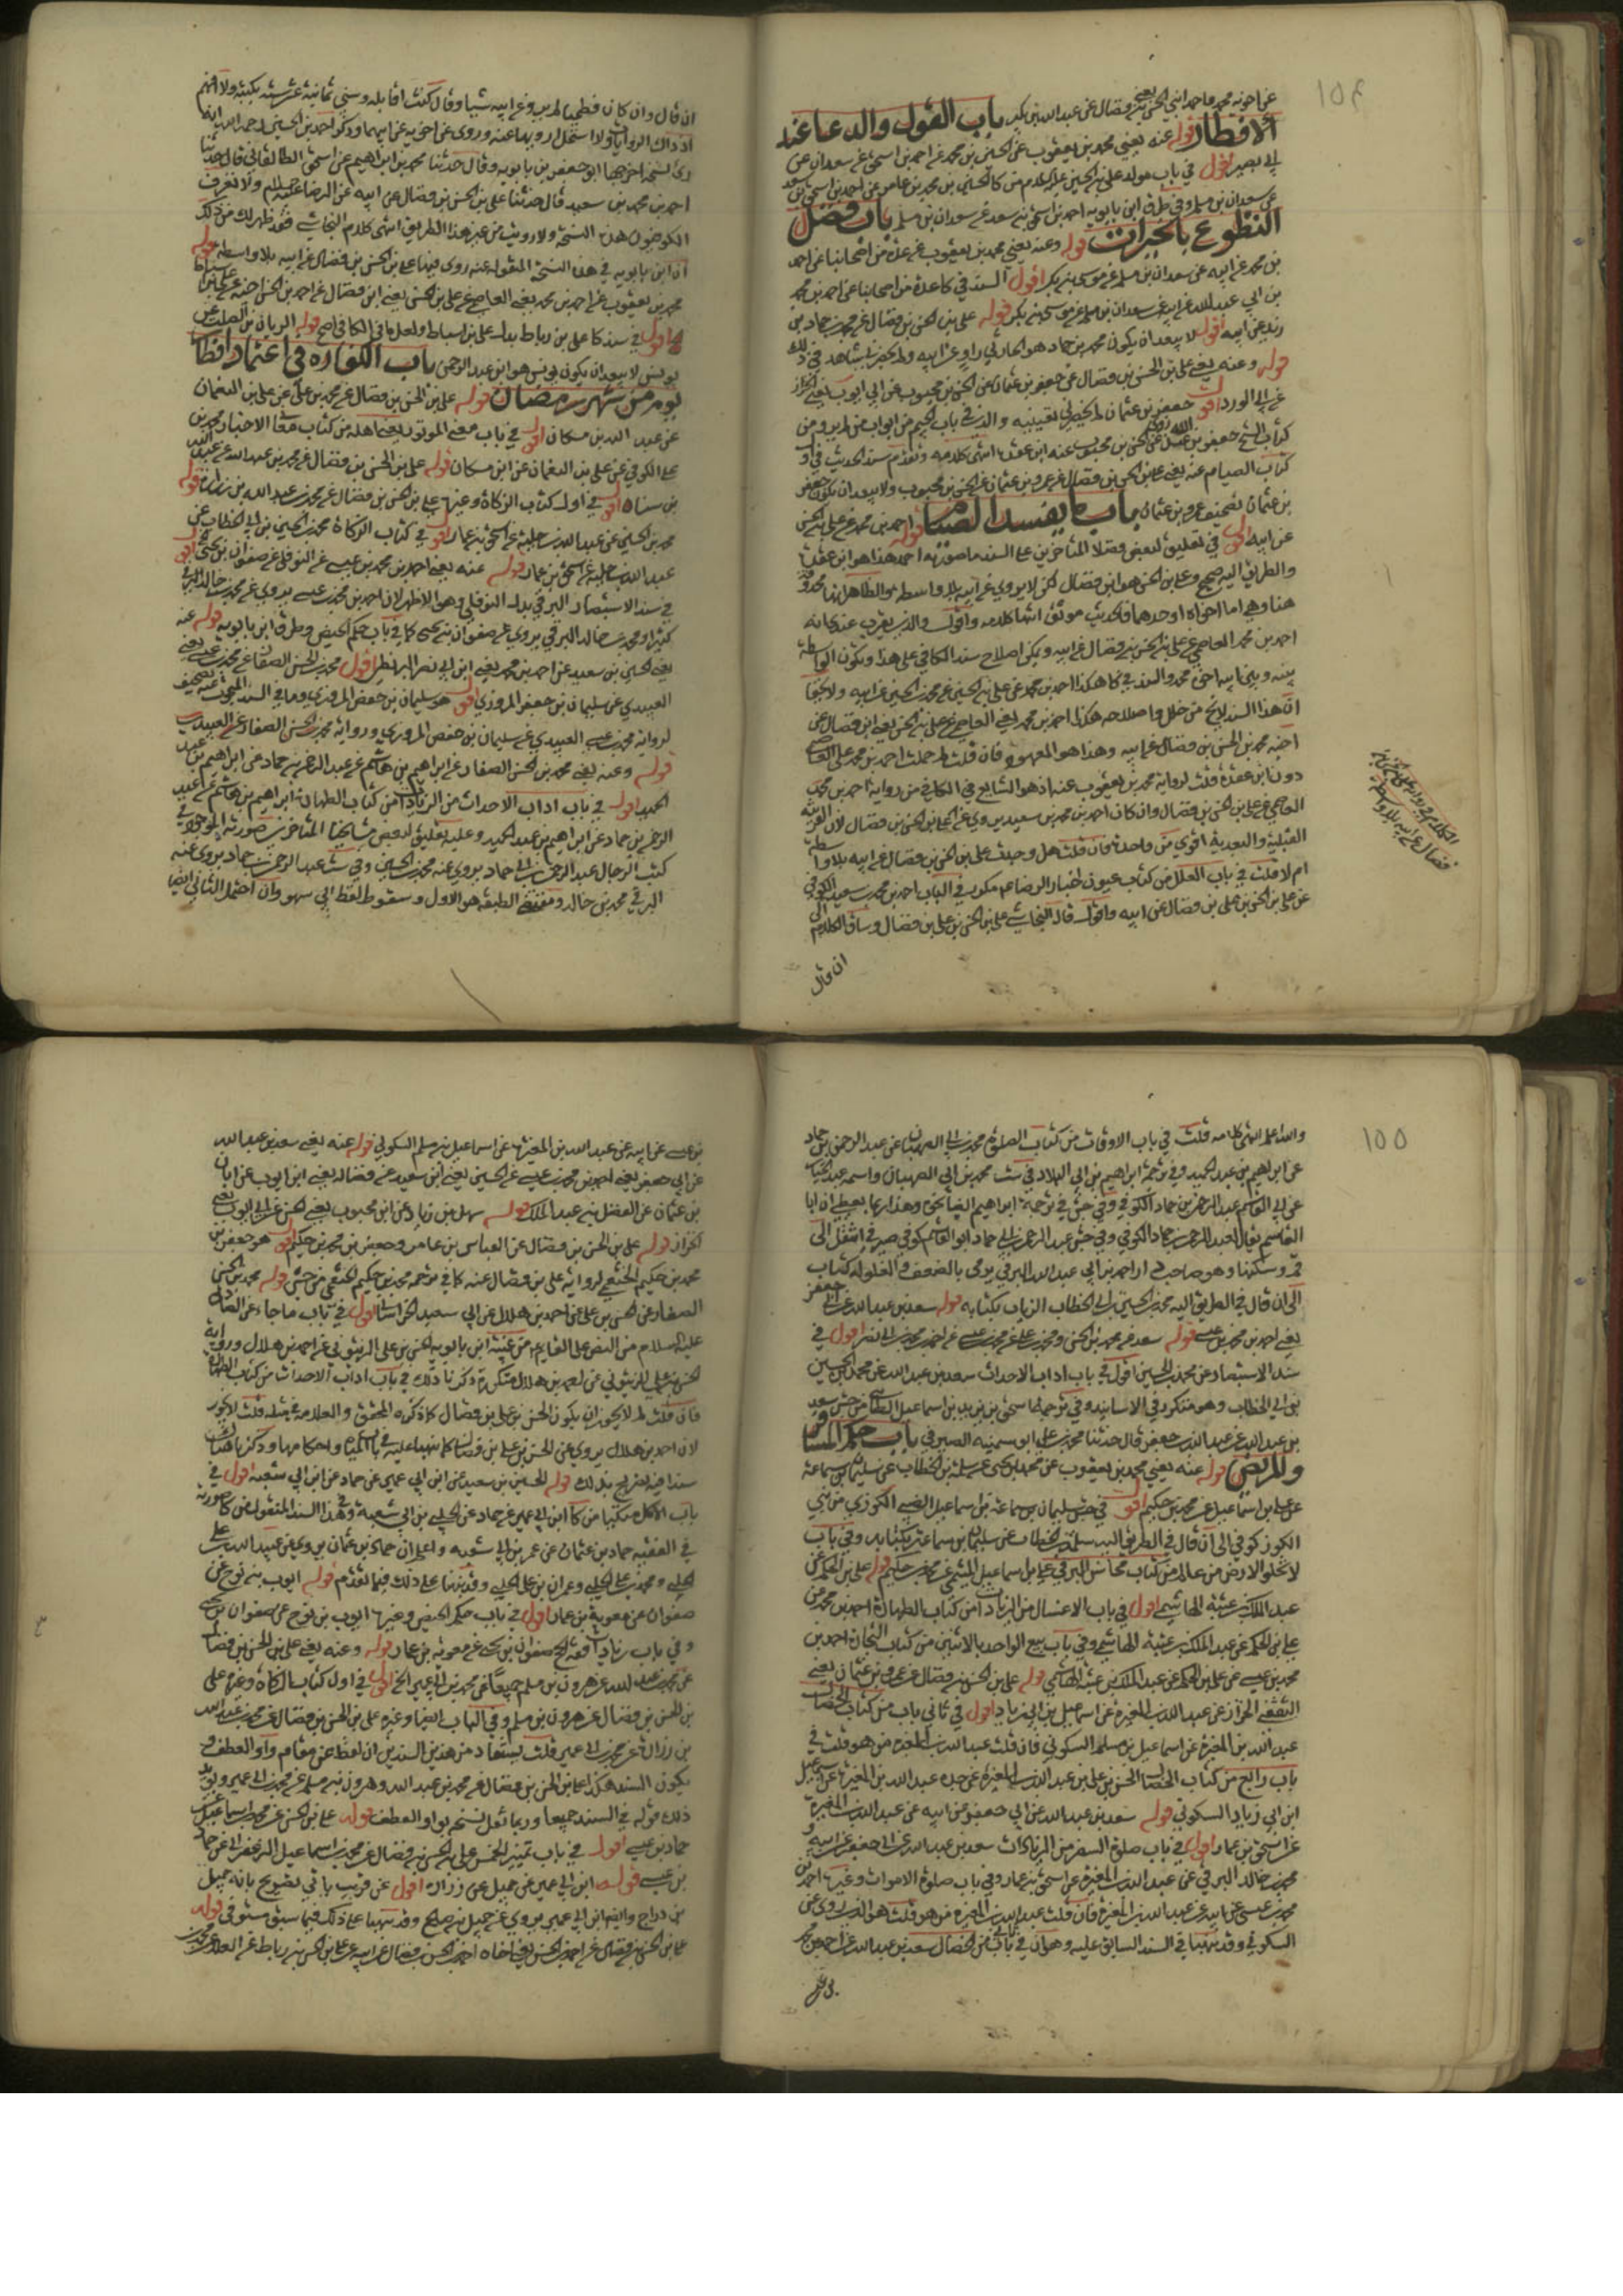 ١٥٤
عن اخويه محمد واحمد ابني الحسن بن فضال عن عبد الله بن بكير باب القول والدعا عند
الافطار قوله عنه يعني محمد بن يعقوب عن الحسين بن محمد عن احمد بن اسحق عن سعدان عن
ابي بصير اقول في باب مولد علي بن الحسين عليه السلام من كا الحسين بن محمد بن عامر عن احمد بن اسحق بن سعد
عن سعدان بن مسلم وفي طرق ابن بابويه احمد بن اسحق بن سعد عن سعدان بن مسلم باب فضل
التطوع بالخيرات قوله وعنه يعني محمد بن يعقوب عن عدة من اصحابنا عن احمد
بن محمد عن ابيه عن سعدان بن مسلم عن موسى بن بكر اقول السند في كا عدة من اصحابنا عن احمد بن محمد
بن ابي عبد الله عن ابيه عن سعدان بن مسلم عن موسى بن بكر قوله علي بن الحسن بن فضال عن محمد بن حماد بن
زيد عن ابيه اقول لا يبعد ان يكون محمد بن حماد هو الحارثي راو عن ابيه ولم يحضرني شاهد في ذلك
قوله وعنه يعني علي بن الحسن بن فضال عن جعفر بن عثمان عن الحسن بن محبوب عن ابي ايوب يعني الخزاز
عن ابي الورد اقول جعفر بن عثمان لم يحضرني تعيينه والذي في باب الجيم من ابواب من لم يرو من
كتاب الشيخ جعفر بن عبد الله روى عن الحسن بن محبوب عنه ابن عقدة انتهى كلامه وتقدم سند الحديث في اول
كتاب الصيام عنه يعني علي بن الحسن بن فضال عن عمرو بن عثمان عن الحسن بن محبوب ولا يبعد ان يكون جعفر
بن عثمان تصحيف عمرو بن عثمان باب ما يفسد الصيام قوله احمد بن محمد عن علي بن الحسن
عن ابيه اقول في تعليق لبعض فضلا المتاخرين على السند ما صورته احمد هذا هو ابن عقدة
والطريق اليه صحيح وعلي بن الحسن هو ابن فضال لكن لا يروي عن ابيه بلا واسطة والظاهر انها محذوفة
هنا وهي اما اخواه او احدهما فالحديث موثق انتهى كلامه واقول والذي يقرب عندي انه
احمد بن محمد العاصمي عن علي بن الحسن بن فضال عن ابيه ويمكن اصلاح سند الكافي على هذا وتكون الواسطة
بينه وبين ابيه اخوه محمد والسند في كا هكذا احمد بن محمد عن علي بن الحسين عن محمد بن الحسين عن ابيه ولا يخفى
ان هذا السند لا يخ من خلل واصلاحه هكذا احمد بن محمد يعني العاصمي عن علي بن الحسن يعني ابن فضال عن
اخيه محمد بن الحسن بن فضال عن ابيه وهذا هو المعهود فان قلت لم حملت احمد بن محمد على العاصمي
دون ابن عقدة قلت لرواية محمد بن يعقوب عنه اذ هو الشايع في الكافي من رواية احمد بن محمد
العاصمي عن علي بن الحسن بن فضال وان كان احمد بن محمد بن سعيد يروي عن علي بن الحسن بن فضال لان القرينة
القبلية والبعدية اقوى من واحدة فان قلت هل وجدت علي بن الحسن بن فضال عن ابيه بلا واسطة
ام لا قلت في باب العلل من كتاب عيون اخبار الرضا ع مكررا في الباب احمد بن محمد بن سعيد الكوفي
عن علي بن الحسن بن علي بن فضال عن ابيه واقول قال النجاشي علي بن الحسن بن علي بن فضال وساق الكلام الى
ان قال
ان قال وان كان فطحيا لم يرو عن ابيه شيا وقال كنت اقابله وسني ثمانية عشر سنة بكتبه ولا افهم
اذ ذاك الروايات ولا استحل ان ارويها عنه وروى عن اخويه عن ابيهما وذكر احمد بن الحسين رحمه الله انه
رأى نسخة اخرجها ابو جعفر بن بابويه وقال حدثنا محمد بن ابراهيم بن اسحق الطالقاني قال حدثنا
احمد بن محمد بن سعيد قال حدثنا علي بن الحسن بن فضال عن ابيه عن الرضا عليه السلام ولا نعرف
الكوفيون هذه النسخة ولا رويت من غير هذا الطريق انتهى كلام النجاشي فقد ظهر لك من ذلك
ان ابن بابويه في هذه النسخة المنقولة عنه روى فيها علي بن الحسن بن فضال عن ابيه بلا واسطة قوله
محمد بن يعقوب عن احمد بن محمد يعني العاصمي عن علي بن الحسن يعني ابن فضال عن احمد بن الحسن اخيه عن علي بن اسباط
اقول في سند كا علي بن رباط بدل علي بن اسباط ولعل ما في الكافي اصح قوله الريان بن الصلت عن
يونس لا يبعد ان يكون يونس هو ابن عبد الرحمن باب الكفارة في اعتماد افطار
يوم من شهر رمضان قوله علي بن الحسن بن فضال عن محمد بن علي عن علي بن النعمان
عن عبد الله بن مسكان اقول في باب معنى الموتور اهله وماله من كتاب معاني الاخبار محمد بن
علي الكوفي عن علي بن النعمان عن ابن مسكان قوله علي بن الحسن بن فضال عن محمد بن عبد الله عن عبد الله
بن سنان اقول في اول كتاب الزكاة وغيرها علي بن الحسن بن فضال عن محمد بن عبد الله بن زرارة قوله
محمد بن الحسين عن عبد الله بن جبلة عن اسحق بن عمار اقول في كتاب الزكاة محمد بن الحسين بن ابي الخطاب عن
عبد الله بن جبلة عن اسحق بن عمار قوله عنه يعني احمد بن محمد بن عيسى عن النوفلي عن صفوان بن يحيى اقول
في سند الاستبصار البرقي بدل النوفلي وهو الاظهر لان احمد بن محمد بن عيسى يروي عن محمد بن خالد البرقي
كثيرا ومحمد بن خالد البرقي يروي عن صفوان بن يحيى كما في باب حكم الحيض وطرق ابن بابويه قوله عنه
يعني الحسين بن سعيد عن احمد بن محمد يعني ابن ابي نصر البزنطي اقول محمد بن الحسن الصفار عن محمد بن عيسى يعني
العبيدي عن سليمان بن جعفر المروزي اقول هو سليمان بن حفص المروزي وما في السند المبحوث عنه تصحيف
لرواية محمد بن عيسى العبيدي عن سليمان بن حفص المروزي ورواية محمد بن الحسن الصفار عن العبيدي
قوله وعنه يعني محمد بن الحسن الصفار عن ابراهيم بن هاشم عن عبد الرحمن بن حماد عن ابراهيم بن عبد
الحميد اقول في باب اداب الاحداث من الزيادات من كتاب الطهارة ابراهيم بن هاشم عن عبد
الرحمن بن حماد عن ابراهيم بن عبد الحميد وعليه تعليق لبعض مشايخنا المتاخرين صورته الموجود في
كتب الرجال عبد الرحمن بن ابي حماد يروي عنه محمد بن الحسين وفي ست عبد الرحمن بن حماد يروي عنه
البرقي محمد بن خالد ومقتضى الطبقة هو الاول وسقوط لفظ ابي سهو وان احتمل الثاني ايضا
١٥٥
والله اعلم انتهى كلامه قلت في باب الاوقات من كتاب الصلوة محمد بن ابي الصهبان عن عبد الرحمن بن حماد
عن ابراهيم بن عبد الحميد وفي ترجمة ابراهيم بن ابي البلاد في ست محمد بن ابي الصهبان واسمه عبد الجبار
عن ابي القاسم عبد الرحمن بن حماد الكوفي وفي جش في ترجمة ابراهيم ايضا نحوه وهذا ربما يعطي ان ابا
القاسم يقال لعبد الرحمن بن حماد الكوفي وفي جش عبد الرحمن بن ابي حماد ابو القاسم كوفي صيرفي انتقل الى
قم وسكنها وهو صاحب دار احمد بن ابي عبد الله البرقي يرمى بالضعف والغلو له كتاب
الى ان قال في الطريق اليه محمد بن الحسين بن ابي الخطاب الزيات بكتابه قوله سعد بن عبد الله عن ابي جعفر
يعني احمد بن محمد بن عيسى قوله سعد عن محمد بن الحسن ومحمد بن علي عن محمد بن عيسى عن احمد بن محمد بن ابي نصر اقول في
سند الاستبصار عن محمد بن الحسين اقول في باب اداب الاحداث سعد بن عبد الله عن محمد بن الحسين
بن ابي الخطاب وهو متكرر في الاسانيد وفي ترجمة اسحق بن يزيد بن اسماعيل الطائي من جش سعد
بن عبد الله عن عبد الله بن جعفر قال حدثنا محمد بن علي ابو سمينة الصيرفي باب حكم المسافر
والمريض قوله عنه يعني محمد بن يعقوب عن محمد بن يحيى عن سلمة بن الخطاب عن سليمان بن سماعة
عن علي بن اسماعيل عن محمد بن حكيم اقول في جش سليمان بن سماعة بن اسماعيل الضبي الكوزي من بني
الكوز كوفي الى ان قال في الطريق اليه سلمة بن الخطاب عن سليمان بن سماعة بكتابه وفي باب
لا تخلو الارض من عالم من كتاب محاسن البرقي علي بن اسماعيل الميثمي عن محمد بن حكيم قوله علي بن الحكم عن
عبد الملك بن عتبة الهاشمي اقول في باب الاغسال من الزيادات من كتاب الطهارة احمد بن محمد عن
علي بن الحكم عن عبد الملك بن عتبة الهاشمي وفي باب بيع الواحد بالاثنين من كتاب التجارة احمد بن
محمد بن عيسى عن علي بن الحكم عن عبد الملك بن عتبة الهاشمي قوله علي بن الحسن بن فضال عن عمرو بن عثمان يعني
الثقفي الخزاز عن عبد الله بن المغيرة عن اسماعيل بن ابي زياد اقول في ثاني باب من كتاب الخصال
عبد الله بن المغيرة عن اسماعيل بن مسلم السكوني فان قلت عبد الله بن المغيرة من هو قلت في
باب رابع من كتاب الخصال الحسن بن علي بن عبد الله بن المغيرة عن جده عبد الله بن المغيرة عن اسماعيل
ابن ابي زياد السكوني قوله سعد بن عبد الله عن ابي جعفر عن ابيه عن عبد الله بن المغيرة
عن اسحق بن عمار اقول في باب صلوة السفر من الزيادات سعد بن عبد الله عن ابي جعفر عن ابيه و
محمد بن خالد البرقي عن عبد الله بن المغيرة عن اسحق بن عمار وفي باب صلوة الاموات وغيرها احمد بن
محمد بن عيسى عن ابيه عن عبد الله بن المغيرة فان قلت عبد الله بن المغيرة من هو قلت هو الذي يروي عن
السكوني وقد نبهنا في السند السابق عليه وهو ان في باب من الخصال سعد بن عبد الله عن احمد بن محمد
بن عيسى
بن عيسى عن ابيه عن عبد الله بن المغيرة عن اسماعيل بن مسلم السكوني قوله عنه يعني سعد بن عبد الله
عن ابي جعفر يعني احمد بن محمد بن عيسى عن الحسين يعني ابن سعيد عن فضالة يعني ابن ايوب عن ابان
بن عثمان عن الفضل بن عبد الملك قوله سهل بن زياد عن ابن محبوب يعني الحسن عن ابي ايوب يعني
الخزاز قوله علي بن الحسن بن فضال عن العباس بن عامر وجعفر بن محمد بن حكيم اقول هو جعفر بن
محمد بن حكيم الخثعمي لرواية علي بن فضال عنه كما في ترجمة محمد بن حكيم الخثعمي من جش قوله محمد بن الحسن
الصفار عن الحسن بن علي عن احمد بن هلال عن ابي سعيد الخراساني اقول في باب ما جاء عن الصادق
عليه السلام من النص على القايم ع من غيبة ابن بابويه الحسن بن علي الزيتوني عن احمد بن هلال ورواية
الحسن بن علي الزيتوني عن احمد بن هلال متكررة ذكرنا ذلك في باب اداب الاحداث من كتاب الطهارة
فان قلت لم لا يجوز ان يكون الحسن بن علي بن فضال كما ذكره المحقق والعلامة في مثله قلت لا يجوز
لان احمد بن هلال يروي عن الحسن بن علي بن فضال كما نبهنا عليه في باب المياه واحكامها وذكرنا هناك
سندا فيه تصريح بذلك قوله الحسين بن سعيد عن ابن ابي عمير عن حماد عن ابن ابي شعبة اقول في
في الفقيه حماد بن عثمان عن عمر بن ابي شعبة واعلم ان حماد بن عثمان يروي عن عبيد الله بن علي
الحلبي ومحمد بن علي الحلبي وعمران بن علي الحلبي وقد نبهنا على ذلك فيما تقدم قوله ايوب بن نوح عن
صفوان عن معوية بن عمار اقول في باب حكم الحيض وغيرها ايوب بن نوح عن صفوان بن يحيى
بن الحسن بن فضال عن هرون بن مسلم وفي الباب ايضا وغيره علي بن الحسن بن فضال عن محمد بن عبد الله
بن زرارة عن محمد بن ابي عمير قلت يستفاد من هذين السندين ان لفظ عن مقام واو العطف و
يكون السند هكذا علي بن الحسن بن فضال عن محمد بن عبد الله وهرون بن مسلم عن محمد بن ابي عمير ويؤيد
ذلك قوله في السند جميعا وربما نقل نسخة بواو العطف قوله علي بن الحسن عن محمد بن اسماعيل عن
حماد بن عيسى اقول في باب تمييز الخمس علي بن الحسن بن فضال عن محمد بن اسماعيل الزعفراني عن حماد
بن عيسى قوله ابن ابي عمير عن جميل عن زرارة اقول عن قريب ياتي تصريح بانه جميل
بن دراج وايضا ابن ابي عمير يروي عن جميل بن صالح وقد نبهنا على ذلك فيما سبق مستوفى قوله
علي بن الحسن بن فضال عن احمد بن الحسن يعني اخاه احمد بن الحسن بن فضال عن ابيه عن علي بن الحسن بن رباط عن العلا عن محمد بن